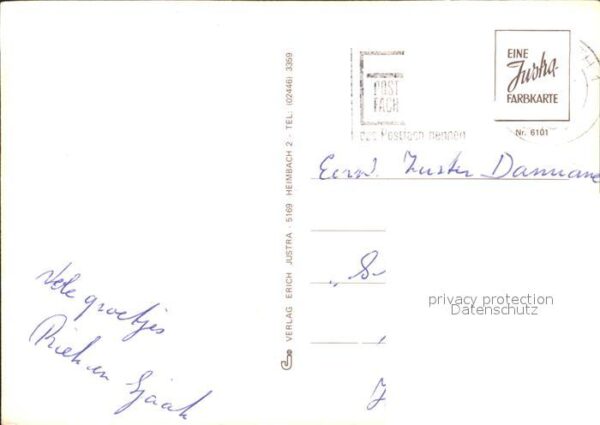 EINE
Justra
FARBKARTE
Nr. 6101
POST
FACH
das Postfach nennen
VERLAG ERICH JUSTRA · 5169 HEIMBACH 2 · TEL: (02446) 3359
Eerw. Zuster Damiane
privacy protection
Datenschutz
Vele groetjes
Riek en Sjaak